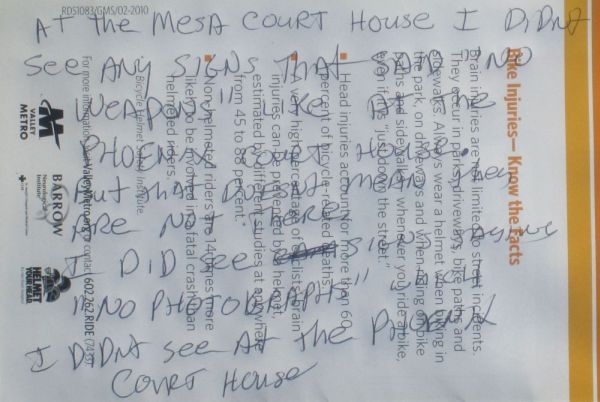 AT THE MESA COURT HOUSE I DIDNT
SEE ANY SIGNS THAT "NO
WEAPONS" LIKE AT THE
PHOENIX COURT HOUSE
BUT THAT DOESNT MEAN they
ARE NOT
I DID SEE SIGN SAYING
"NO PHOTOGRAPHS" I
I DIDNT SEE AT THE PHOENIX
COURT HOUSE
RDS1083/GMS/02-2010
Bike Injuries—Know the Facts
Brain injuries are not limited to street incidents.
They occur in parks, driveways, bike paths and
sidewalks. Always wear a helmet when biking in
the park, on driveways and when riding on bike
paths and sidewalks, whenever you ride a bike,
even if it's "just down the street."
Head injuries account for more than 60
percent of bicycle-related deaths.
A very high percentage of cyclists' brain
injuries can be prevented by a helmet,
estimated by different studies at anywhere
from 45 to 88 percent.
Non-helmeted riders are 14 times more
likely to be involved in a fatal crash than
helmeted riders.
Bicycle Helmet Safety Institute
For more information, visit ValleyMetro.org or contact 602.262.RIDE (7433)
VALLEY
METRO
BARROW
Neurological
Institute
HELMET
YOUR HEAD